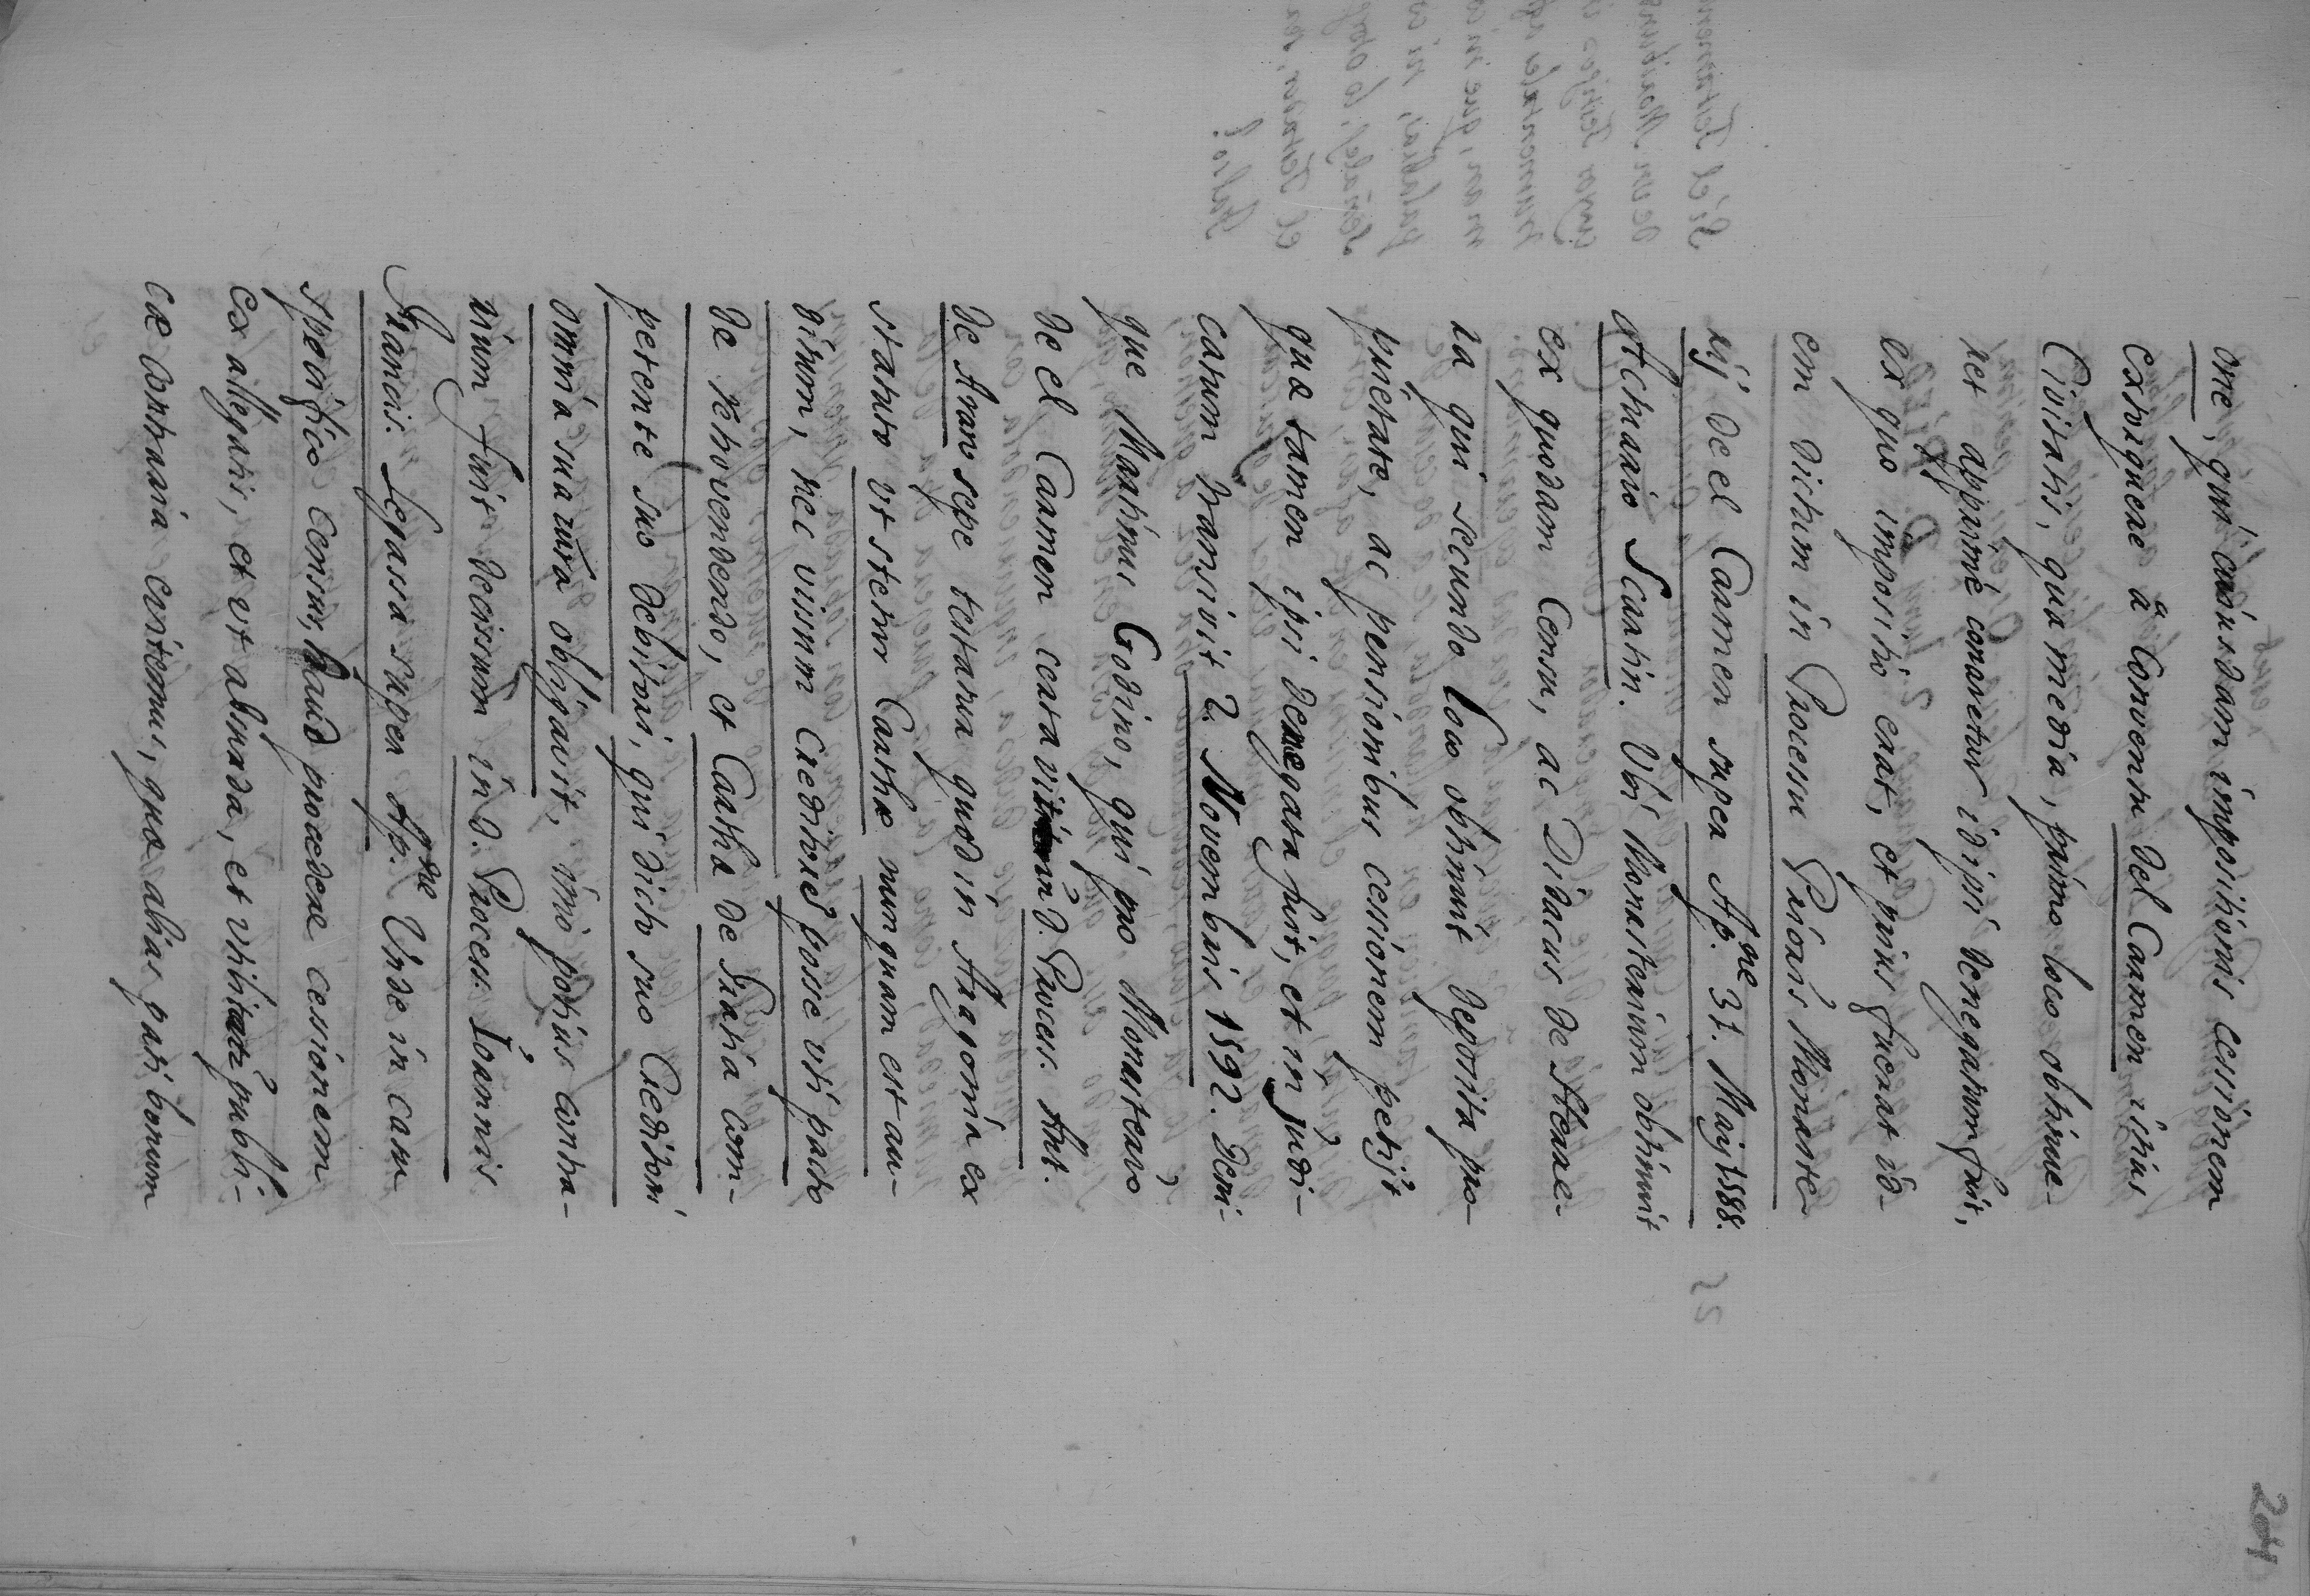 204
one, qui cuiusdam impositionis cessionem
extorquere â Conventu del Carmen istius
Civitatis, qua media, primo loco obtinue-
ret apprimè conaretur idipsi denegatum fuit,
ex quo impositio erat, et prius fuerat ad-
em dictum in Processu Prioris Monaste-
rij de el Carmen super Ap.ne 31. Maij 1588.
Actuario Scartin. Ubi Monasterium obtinuit
ex quodam Censu, ac Didacus de Herre-
ra qui secundo loco obtinuit deposita pro-
prietate, ac pensionibus cessionem petijt
qua tamen ipsi denegata fuit, et in judi-
catum transivit 2. Novembris 1592. Deni-
que Martinus Godino, qui pro Monasterio
de el Carmen certavit in d. Process. Ant.
de Arano sepe testatur quod in Aragonia ex
statuto ut stetur Cartha nunquam est au-
ditum, nec visum Creditores posse uti pacto
de retrovendendo, et Cartha de Gratia com-
petente suo debitori, qui dicto suo Creditori
omnia sua iura obligavit, imo potius contra-
rium fuit decissum in d. Process. Ioannis
Francis. Segassa super Ap.ne Unde in casu
specifico Census, haud procedere cessionem
ex allegatis, et ut absurda, et utilitati publi-
cæ contraria evitemus, quo alias pati bonum